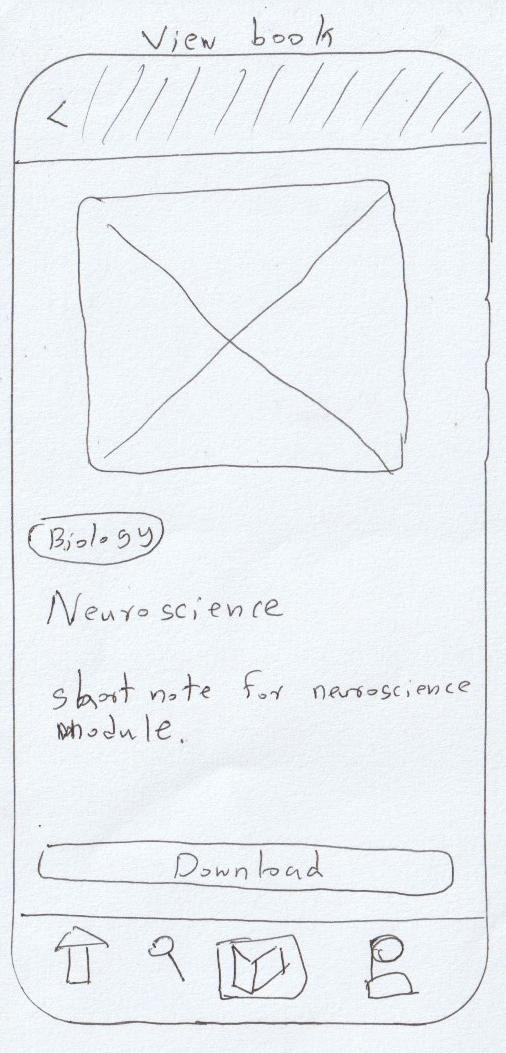 View book
<
Biology
Neuroscience
short note for neuroscience
module.
Download